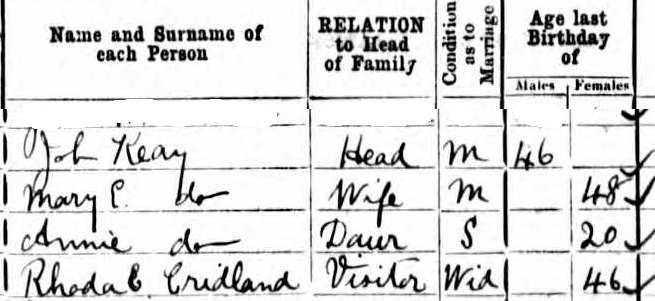 Name and Surname of each Person RELATION to Head of Family Condition as to Marriage Age last Birthday of
Males Females
Job Keay Head M 46
Mary E. do Wife M 48
Annie do Daur S 20
Rhoda E Cridland Visitor Wid 46